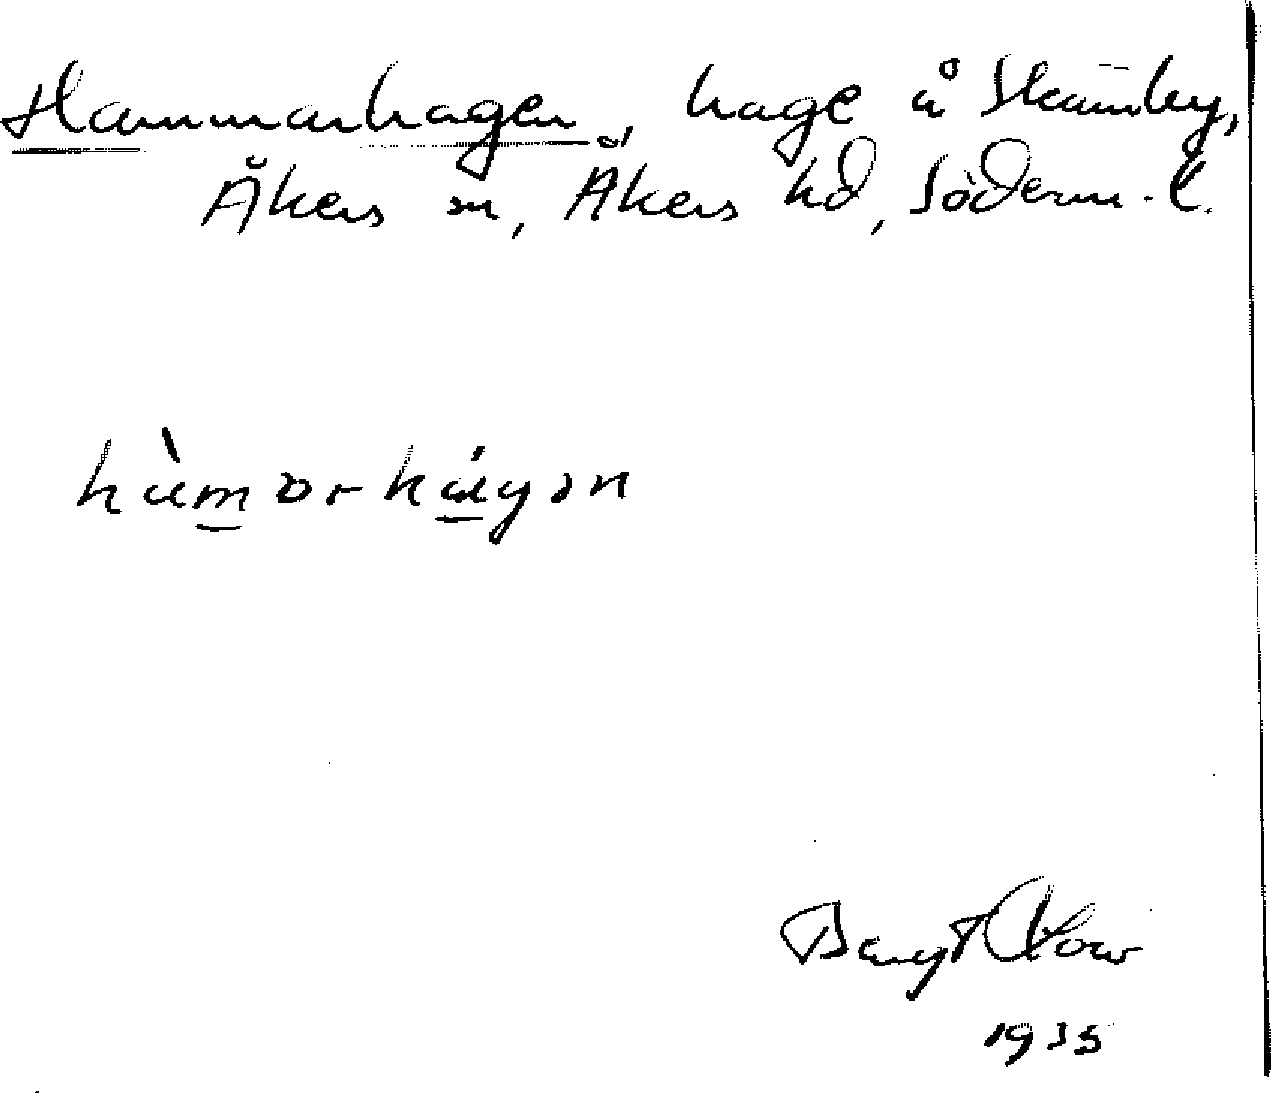 Hammarhagen, hage å Skämby,
Åkers sn, Åkers hd, Söderm. l.
hàmɔrhágən
Bengt
1935